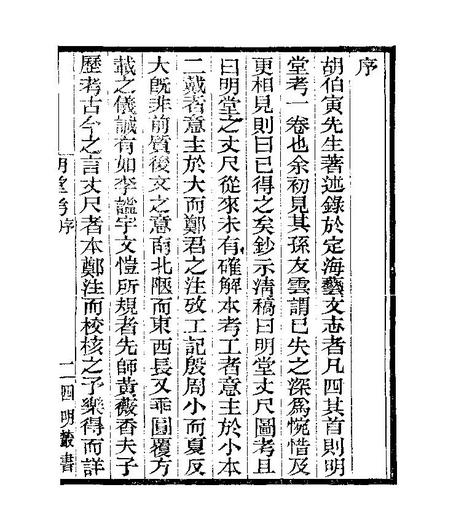 序
胡伯寅先生著述錄於定海藝文志者凡四其首則明
堂考一卷也余初見其孫友雲謂已失之深爲惋惜及
更相見則曰已得之矣鈔示清稿曰明堂丈尺圖考且
曰明堂之丈尺從來未有確解本考工者意主於小本
二戴者意主於大而鄭君之注攷工記殷周小而夏反
大旣非前質後文之意南北陿而東西長又乖圓覆方
載之儀誠有如李謐宇文愷所規者先師黃薇香夫子
歷考古今之言丈尺者本鄭注而校核之予樂得而詳
明堂考序
一
四明叢書